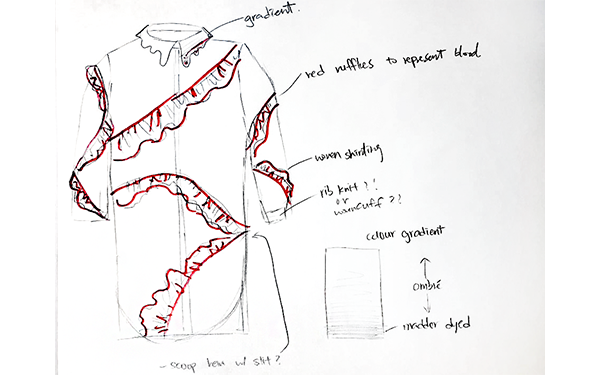 gradient.
red ruffles to represent blood
woven shirting
rib knit ?!
or
cuff ??
colour gradient
ombré
madder dyed
- scoop hem w/ slit ?